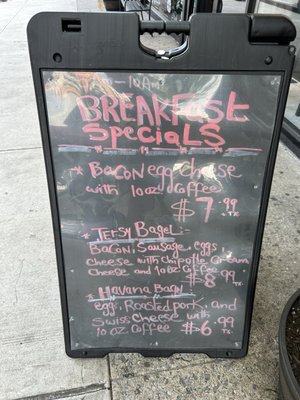 - 10AM
BREAKFast
SPeciaLS
* BaCON egg cheese
with 10oz coffee
$7.99
TX
* Jersy Bagel:-
Bacon, Sausage, eggs
cheese with chipotle cream
cheese and 10oz coffee
$8.99
TX
* Havana
egg, Roasted pork, and
Swiss cheese with
10oz coffee
$6.99
TX